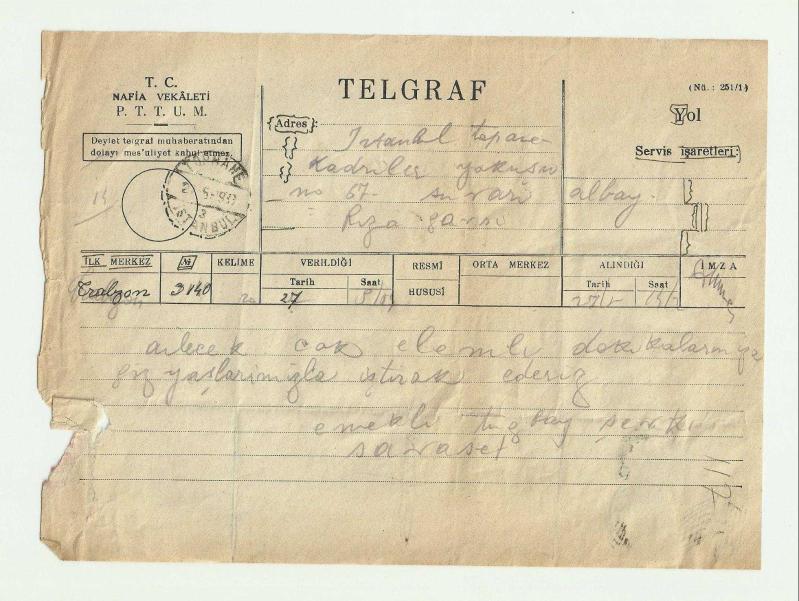 T. C.
NAFİA VEKÂLETİ
P. T. T. U. M.
Devlet telgraf muhaberatından
dolayı mes'uliyet kabul etmez.
TELGRAF
(Nü.: 251/1)
Adres :
Yol
Servis işaretleri:
İstanbul topane
Kadriler yokuşu
no 67 suvari albay
Rıza
İLK MERKEZ
№
KELİME
VERİLDİĞİ
Tarih
Saat
RESMÎ
HUSUSİ
ORTA MERKEZ
ALINDIĞI
Tarih
Saat
İMZA
Trabzon 3140 20 27
ailecek cok elemli dakikalarınıza
göz yaşlarımızla iştirak ederiz
emekli tugbay